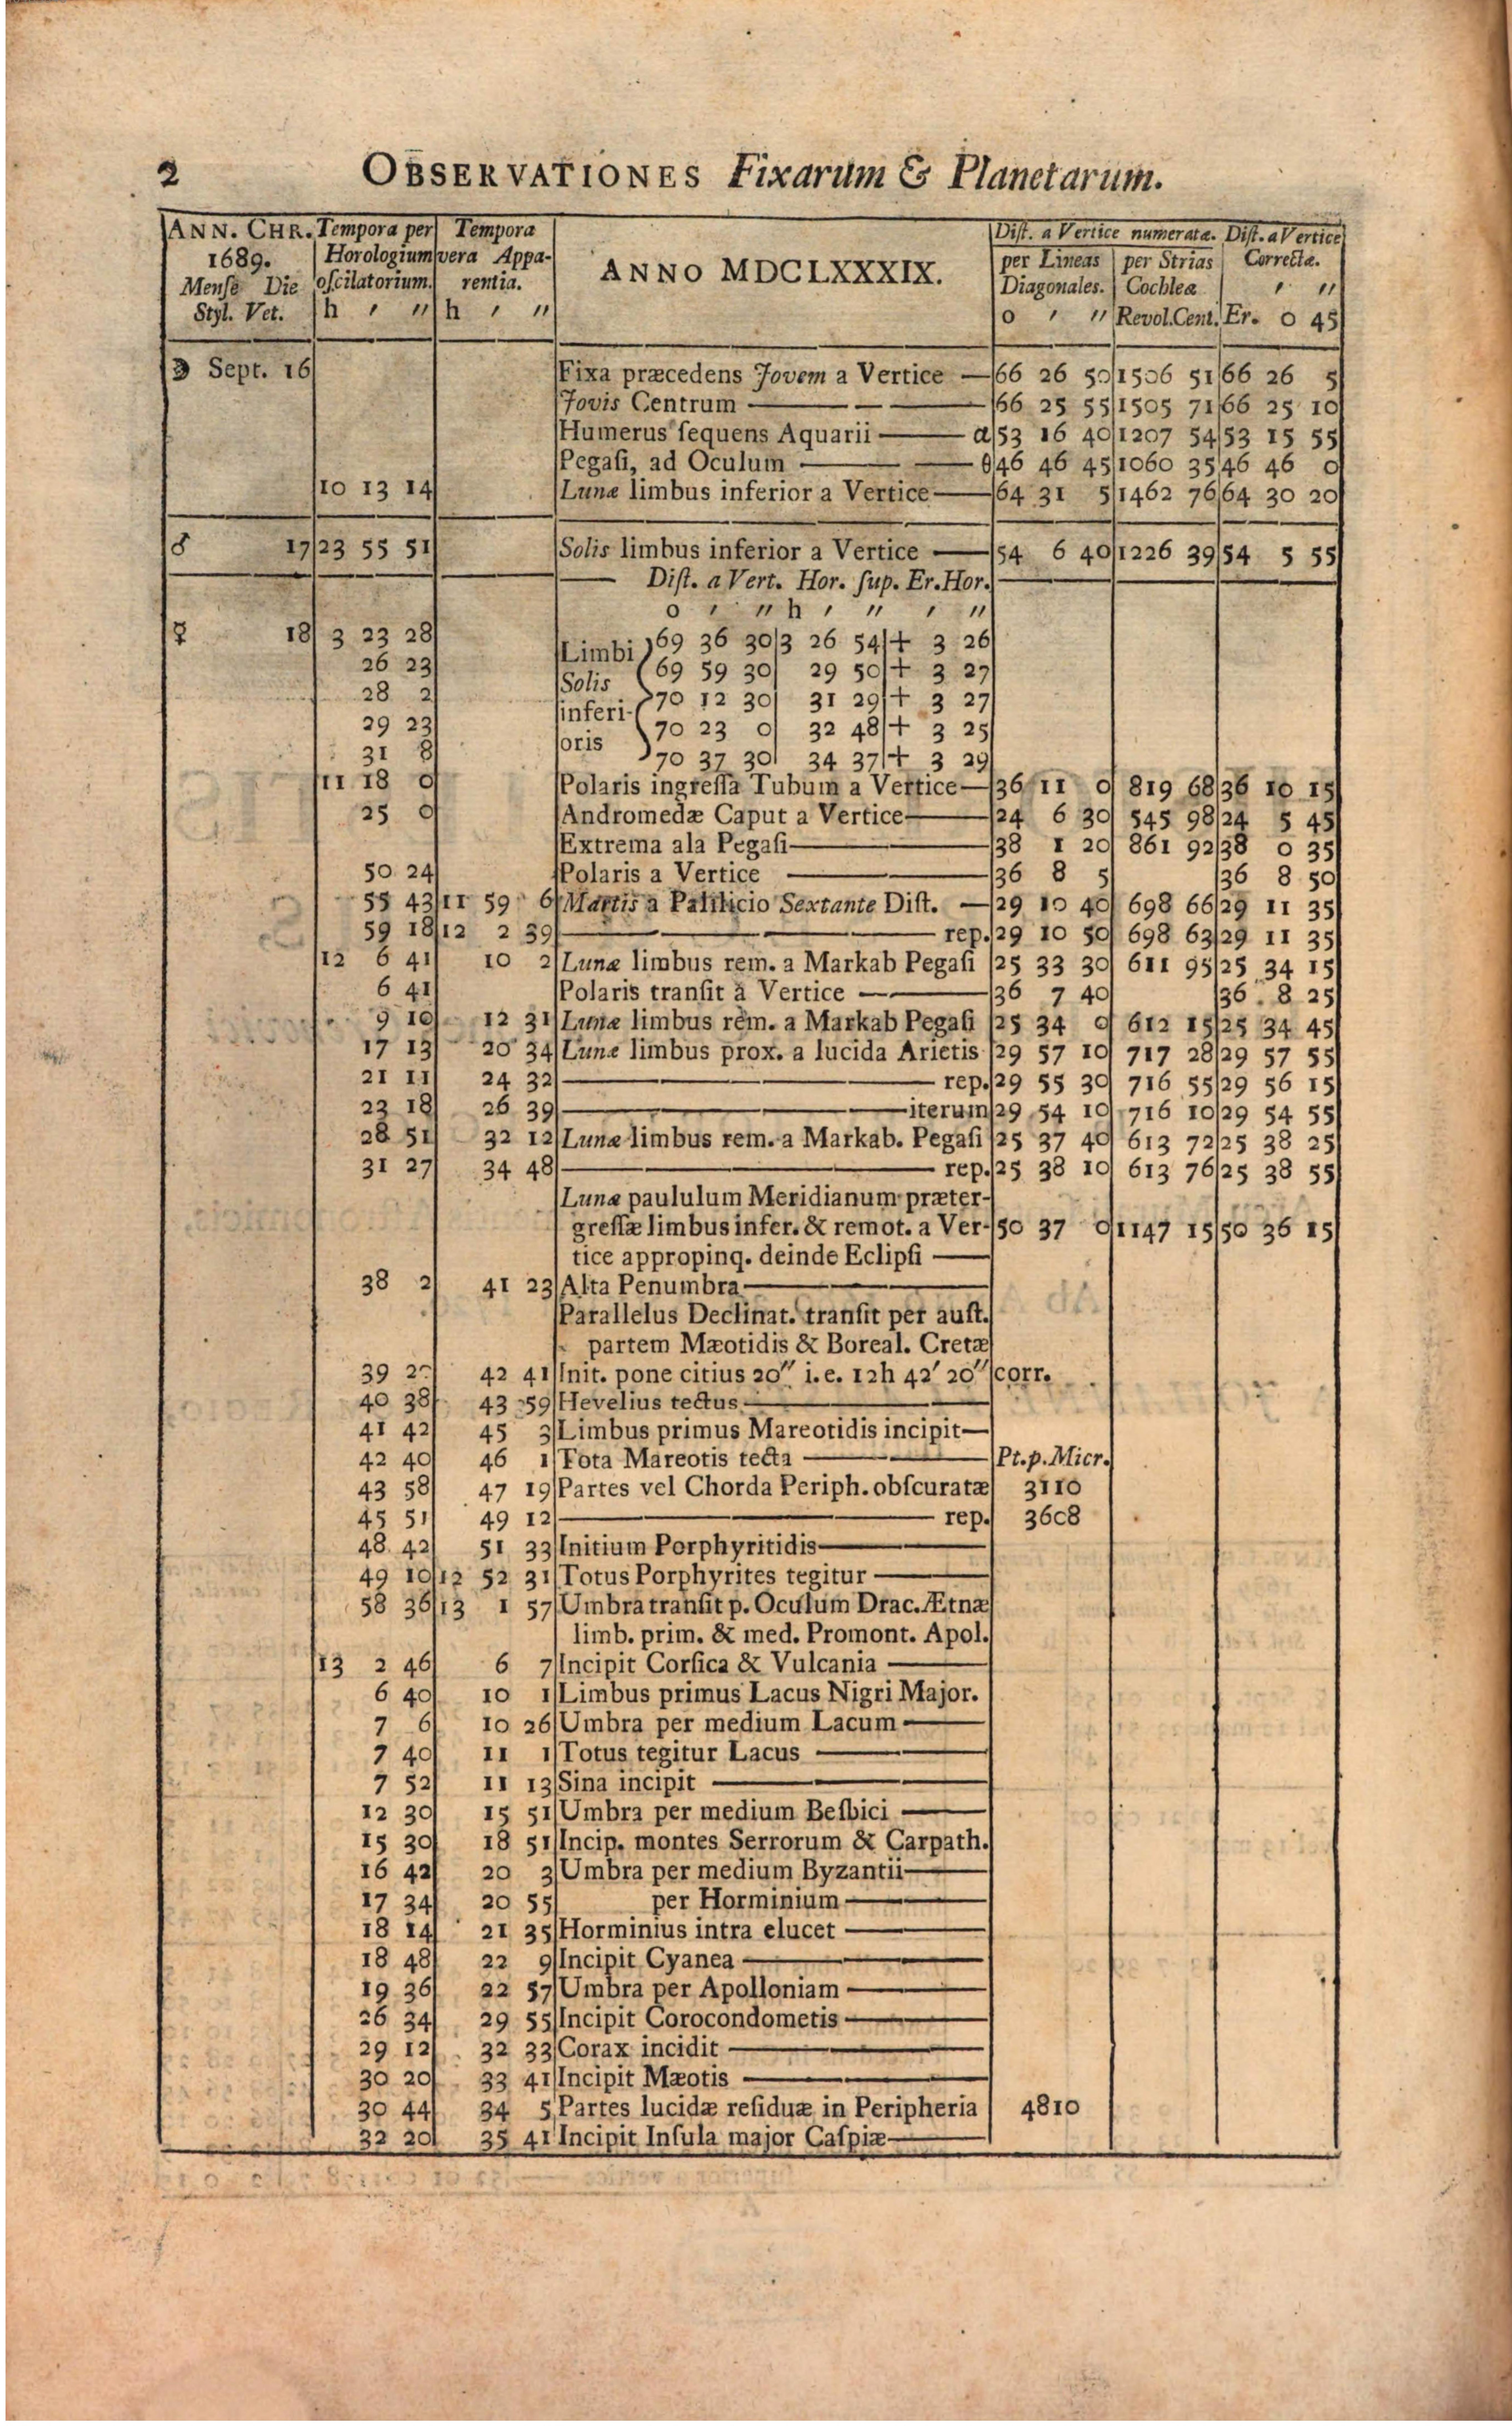 2 OBSERVATIONES Fixarum & Planetarum.
ANN. CHR. Tempora per Tempora Dist. a Vertice numerata. Dist. a Vertice
1689. Horologium vera Appa- ANNO MDCLXXXIX. per Lineas per Strias Correcta.
Mense Die oscilatorium. rentia. Diagonales. Cochlea ′ ″
Styl. Vet. h ′ ″ h ′ ″ o ′ ″ Revol. Cent. Er. 0 45
☽ Sept. 16 Fixa præcedens Jovem a Vertice — 66 26 50 1506 51 66 26 5
Jovis Centrum — 66 25 55 1505 71 66 25 10
Humerus sequens Aquarii — α 53 16 40 1207 54 53 15 55
Pegasi, ad Oculum — θ 46 46 45 1060 35 46 46 0
10 13 14 Lunæ limbus inferior a Vertice — 64 31 5 1462 76 64 30 20
♂ 17 23 55 51 Solis limbus inferior a Vertice — 54 6 40 1226 39 54 5 55
— Dist. a Vert. Hor. sup. Er. Hor.
o ′ ″ h ′ ″ ′ ″
☿ 18 3 23 28 Limbi 69 36 30 3 26 54 + 3 26
26 23 Solis 69 59 30 29 50 + 3 27
28 2 inferi- 70 12 30 31 29 + 3 27
29 23 oris 70 23 0 32 48 + 3 25
31 8 70 37 30 34 37 + 3 29
11 18 0 Polaris ingressa Tubum a Vertice — 36 11 0 819 68 36 10 15
25 0 Andromedæ Caput a Vertice — 24 6 30 545 98 24 5 45
Extrema ala Pegasi — 38 1 20 861 92 38 0 35
50 24 Polaris a Vertice — 36 8 5 36 8 50
55 43 11 59 6 Martis a Palilicio Sextante Dist. — 29 10 40 698 66 29 11 35
59 18 12 2 39 — rep. 29 10 50 698 63 29 11 35
12 6 41 10 2 Lunæ limbus rem. a Markab Pegasi 25 33 30 611 95 25 34 15
6 41 Polaris transit a Vertice — 36 7 40 36 8 25
9 10 12 31 Lunæ limbus rem. a Markab Pegasi 25 34 0 612 15 25 34 45
17 13 20 34 Lunæ limbus prox. a lucida Arietis 29 57 10 717 28 29 57 55
21 11 24 32 — rep. 29 55 30 716 55 29 56 15
23 18 26 39 — iterum 29 54 10 716 10 29 54 55
28 51 32 12 Lunæ limbus rem. a Markab. Pegasi 25 37 40 613 72 25 38 25
31 27 34 48 — rep. 25 38 10 613 76 25 38 55
Lunæ paululum Meridianum præter-
gressæ limbus infer. & remot. a Ver- 50 37 0 1147 15 50 36 15
tice appropinq. deinde Eclipsi —
38 2 41 23 Alta Penumbra —
Parallelus Declinat. transit per aust.
partem Mæotidis & Boreal. Cretæ
39 20 42 41 Init. pone citius 20″ i.e. 12h 42′ 20″ corr.
40 38 43 59 Hevelius tectus. —
41 42 45 3 Limbus primus Mareotidis incipit —
42 40 46 1 Tota Mareotis tecta — Pt. p. Micr.
43 58 47 19 Partes vel Chorda Periph. obscuratæ 3110
45 51 49 12 — rep. 3608
48 42 51 33 Initium Porphyritidis —
49 10 12 52 31 Totus Porphyrites tegitur —
58 36 13 1 57 Umbra transit p. Oculum Drac. Ætnæ
limb. prim. & med. Promont. Apol.
13 2 46 6 7 Incipit Corsica & Vulcania —
6 40 10 1 Limbus primus Lacus Nigri Major.
7 6 10 26 Umbra per medium Lacum —
7 40 11 1 Totus tegitur Lacus —
7 52 11 13 Sina incipit —
12 30 15 51 Umbra per medium Besbici —
15 30 18 51 Incip. montes Serrorum & Carpath.
16 42 20 3 Umbra per medium Byzantii —
17 34 20 55 per Horminium —
18 14 21 35 Horminius intra elucet —
18 48 22 9 Incipit Cyanea —
19 36 22 57 Umbra per Apolloniam —
26 34 29 55 Incipit Corocondometis —
29 12 32 33 Corax incidit —
30 20 33 41 Incipit Mæotis —
30 44 34 5 Partes lucidæ residuæ in Peripheria 4810
32 20 35 41 Incipit Insula major Caspiæ —